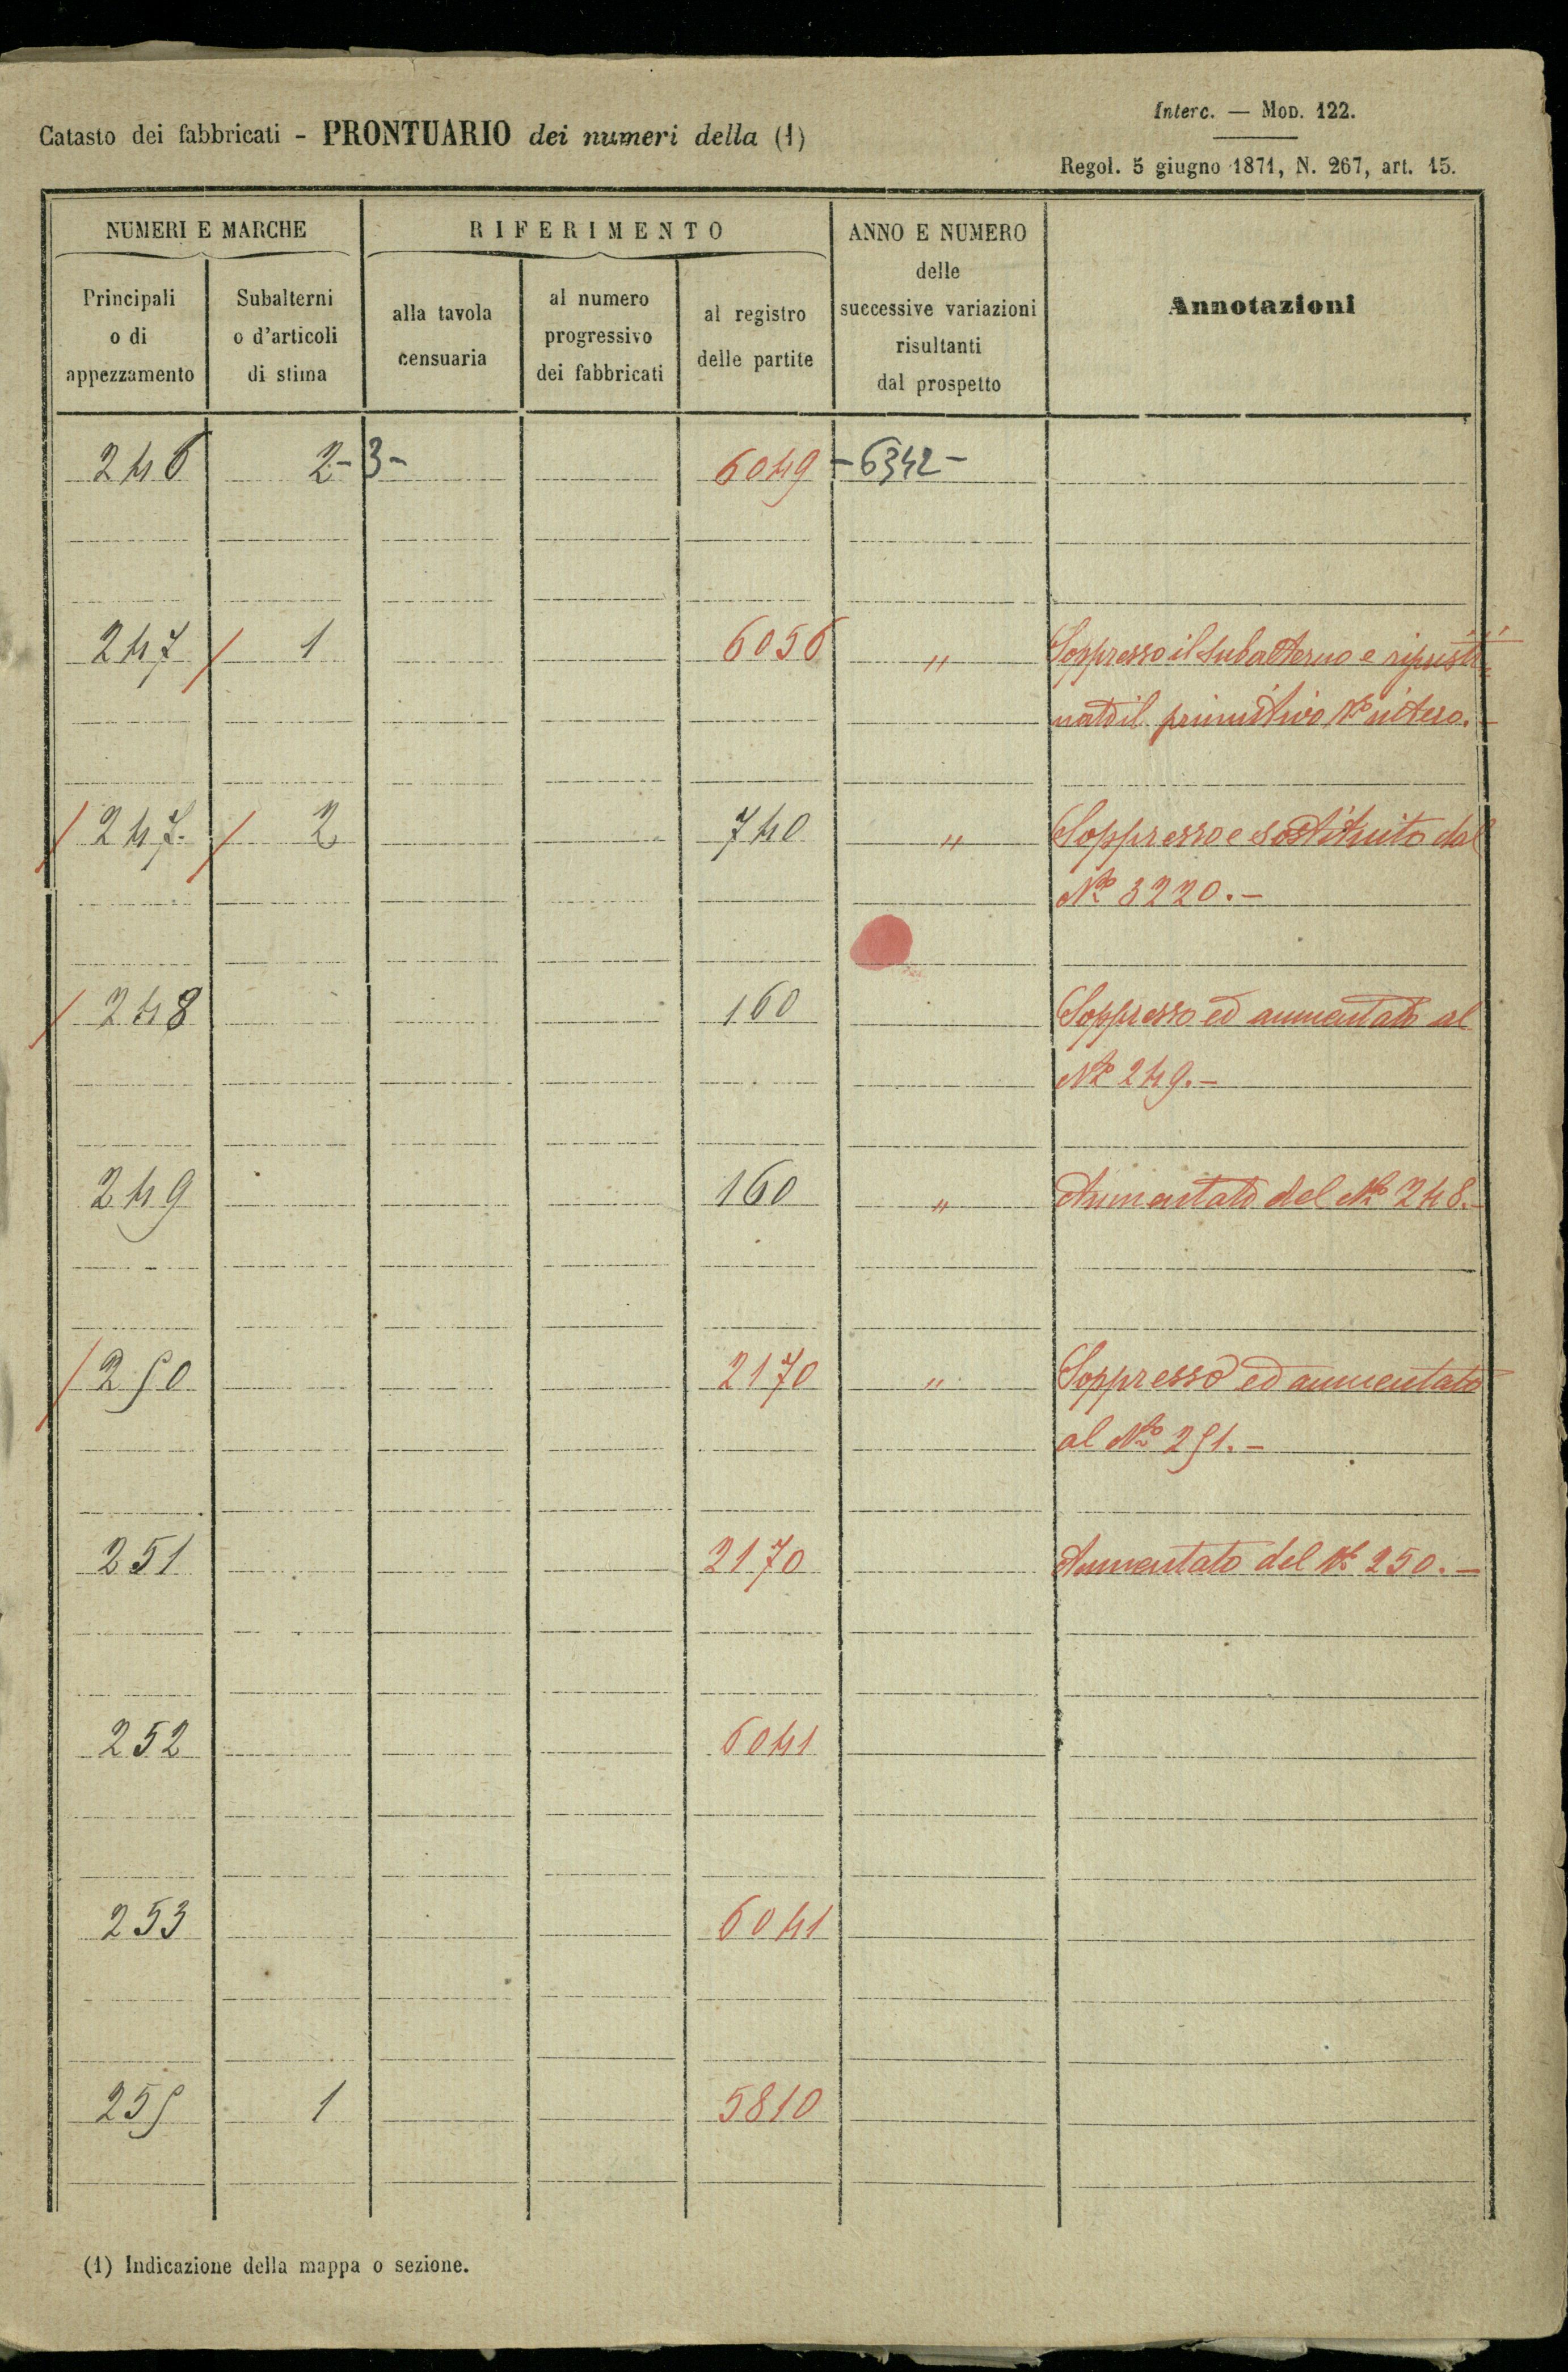 Interc. — Mod. 122.
Catasto dei fabbricati - PRONTUARIO dei numeri della (1)
Regol. 5 giugno 1871, N. 267, art. 15.
NUMERI E MARCHE
RIFERIMENTO
ANNO E NUMERO
delle
successive variazioni
risultanti
dal prospetto
Annotazioni
Principali
o di
appezzamento
Subalterni
o d'articoli
di stima
alla tavola
censuaria
al numero
progressivo
dei fabbricati
al registro
delle partite
246 2-3- 6049 -6342-
247 / 1 6056 " Soppresso il subalterno e ripristi=
nato il primitivo No intero.-
/ 247. / 2 740 " Soppresso e sostituito dal
No 3220.-
/ 248 160 Soppresso ed aumentato al
No 249.-
249 160 " Aumentato del No 248.-
/ 250 2170 " Soppresso ed aumentato
al No 251.-
251 2170 Aumentato del No 250.-
252 6041
253 6041
255 1 5810
(1) Indicazione della mappa o sezione.